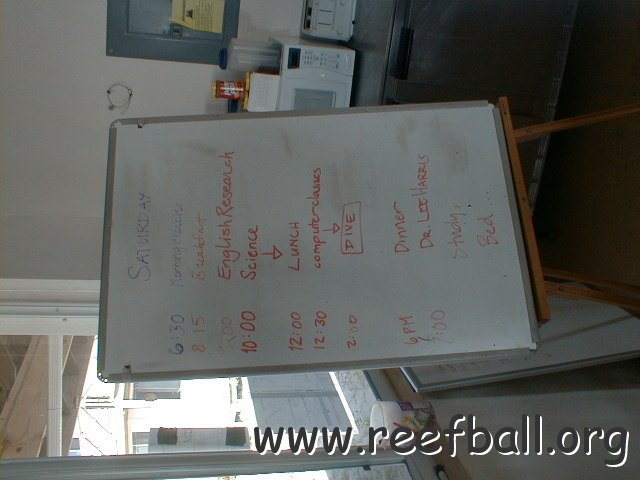 SATURDAY
6:30 Morning exercise
8:15 Breakfast
9:00 English Research
10:00 Science
12:00 LUNCH
12:30 computer classes
2:00 DIVE
6 PM Dinner
7:00 Dr. Lee HARRIS
Study,
Bed...
www.reefball.org